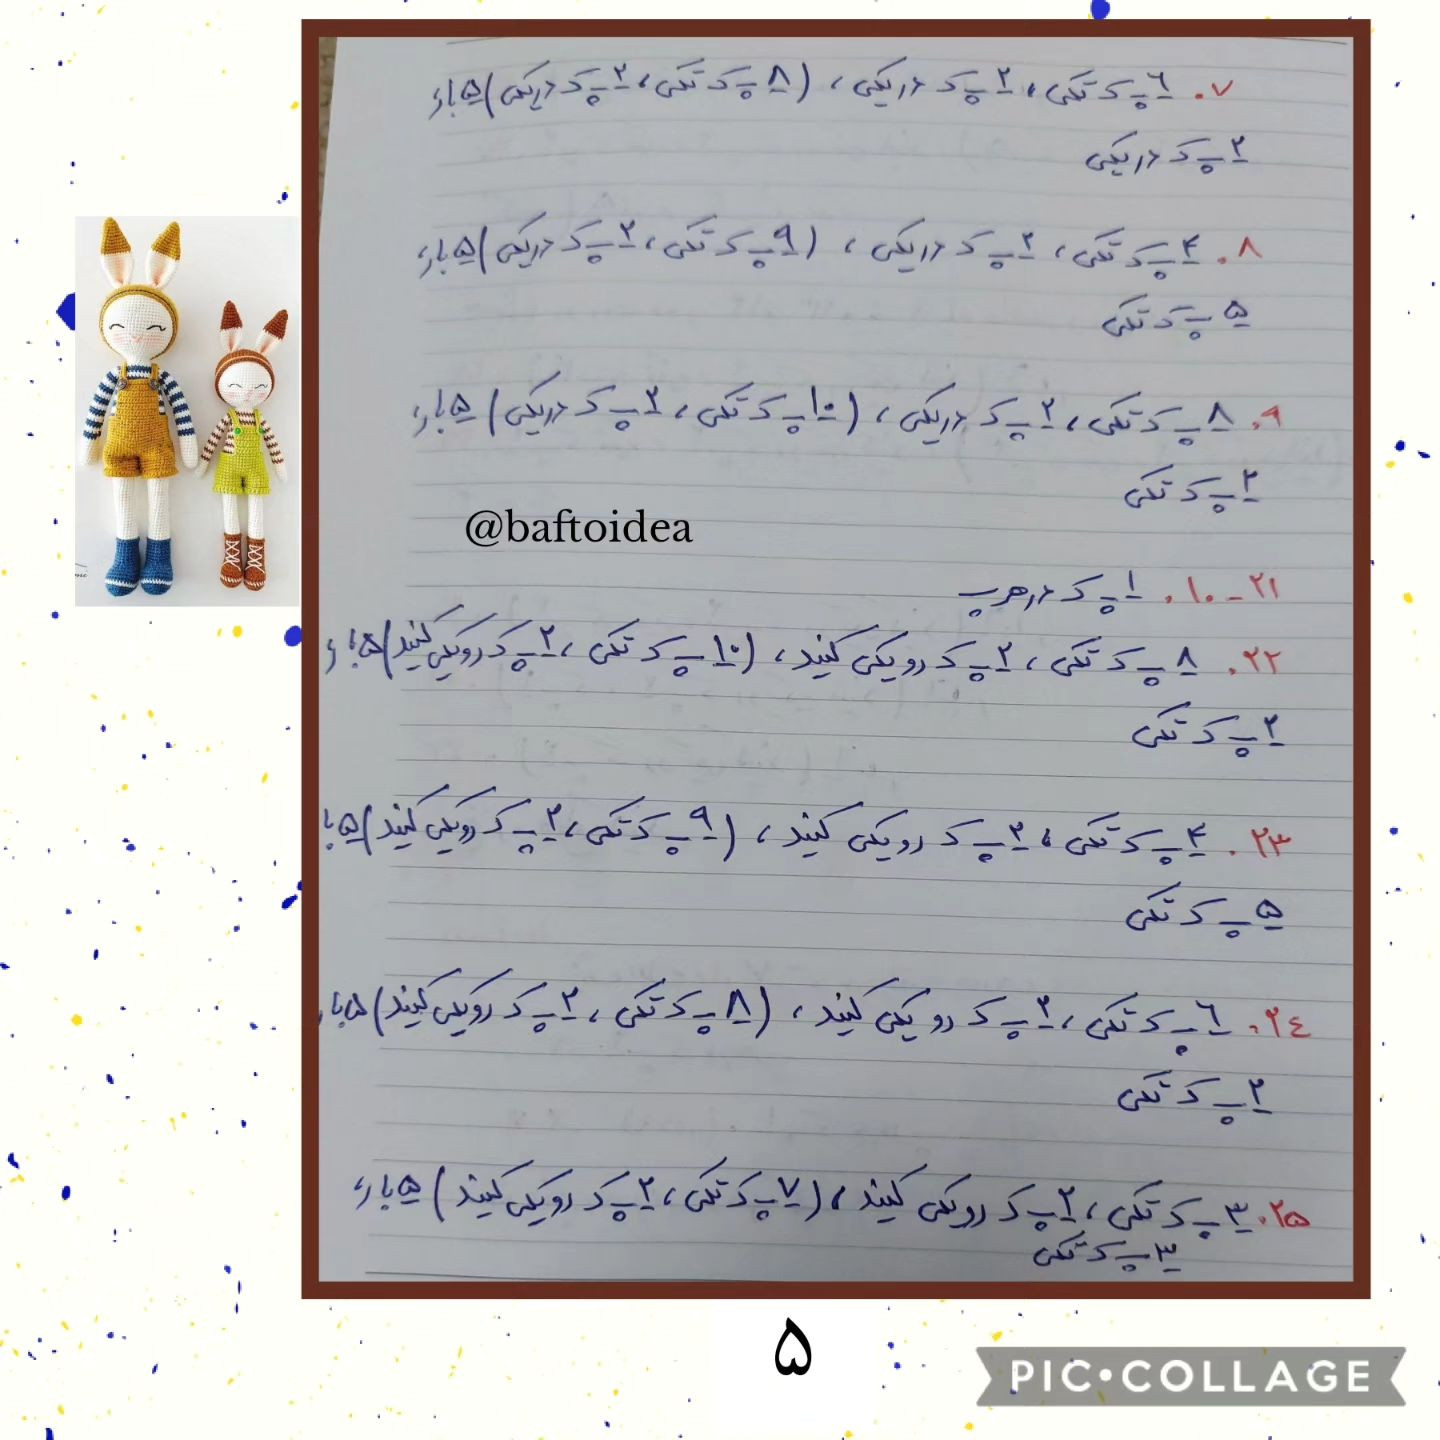 ۷. ۶ پ ک تکی، ۲ پ ک دریکی، (۸ پ ک تکی، ۲ پ ک دریکی) ۵ بار،
۲ پ ک دریکی
۸. ۴ پ ک تکی، ۲ پ ک دریکی، (۹ پ ک تکی، ۲ پ ک دریکی) ۵ بار،
۵ پ ک تکی
۹. ۸ پ ک تکی، ۲ پ ک دریکی، (۱۰ پ ک تکی، ۲ پ ک دریکی) ۵ بار،
۲ پ ک تکی
@baftoidea
۱۰-۲۱. ۱ پ ک درهرپ
۲۲. ۸ پ ک تکی، ۲ پ ک رو یکی کنید، (۱۰ پ ک تکی، ۲ پ ک رو یکی کنید) ۵ بار،
۲ پ ک تکی
۲۳. ۴ پ ک تکی، ۲ پ ک رو یکی کنید، (۹ پ ک تکی، ۲ پ ک رو یکی کنید) ۵ با
۵ پ ک تکی
۲۴. ۶ پ ک تکی، ۲ پ ک رو یکی کنید، (۸ پ ک تکی، ۲ پ ک رو یکی کنید) ۵ بار
۲ پ ک تکی
۲۵. ۳ پ ک تکی، ۲ پ ک رو یکی کنید، (۷ پ ک تکی، ۲ پ ک رو یکی کنید) ۵ بار،
۳ پ ک تکی
۵
PIC•COLLAGE